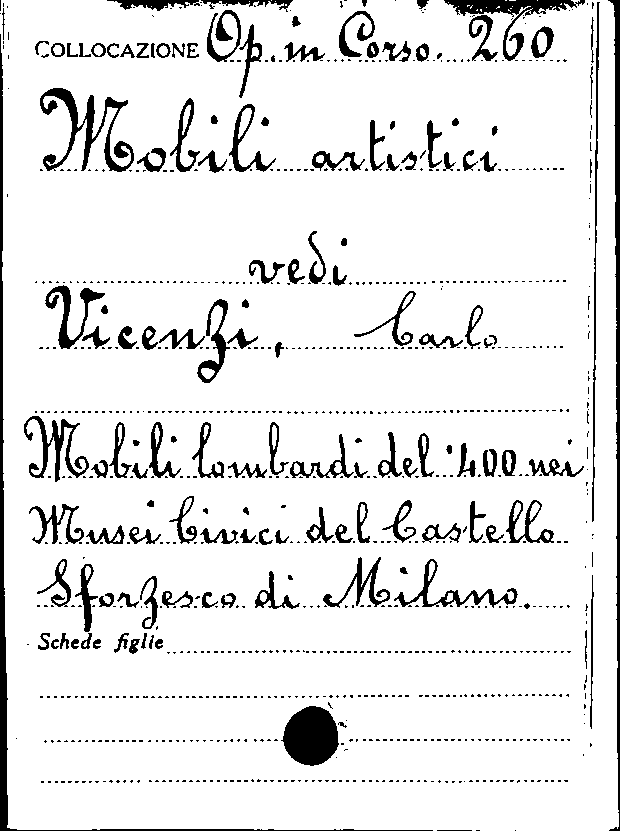 COLLOCAZIONE Op. in Corso. 260
Mobili artistici
vedi
Vicenzi, Carlo
Mobili lombardi del '400 nei
Musei Civici del Castello
Sforzesco di Milano.
Schede figlie